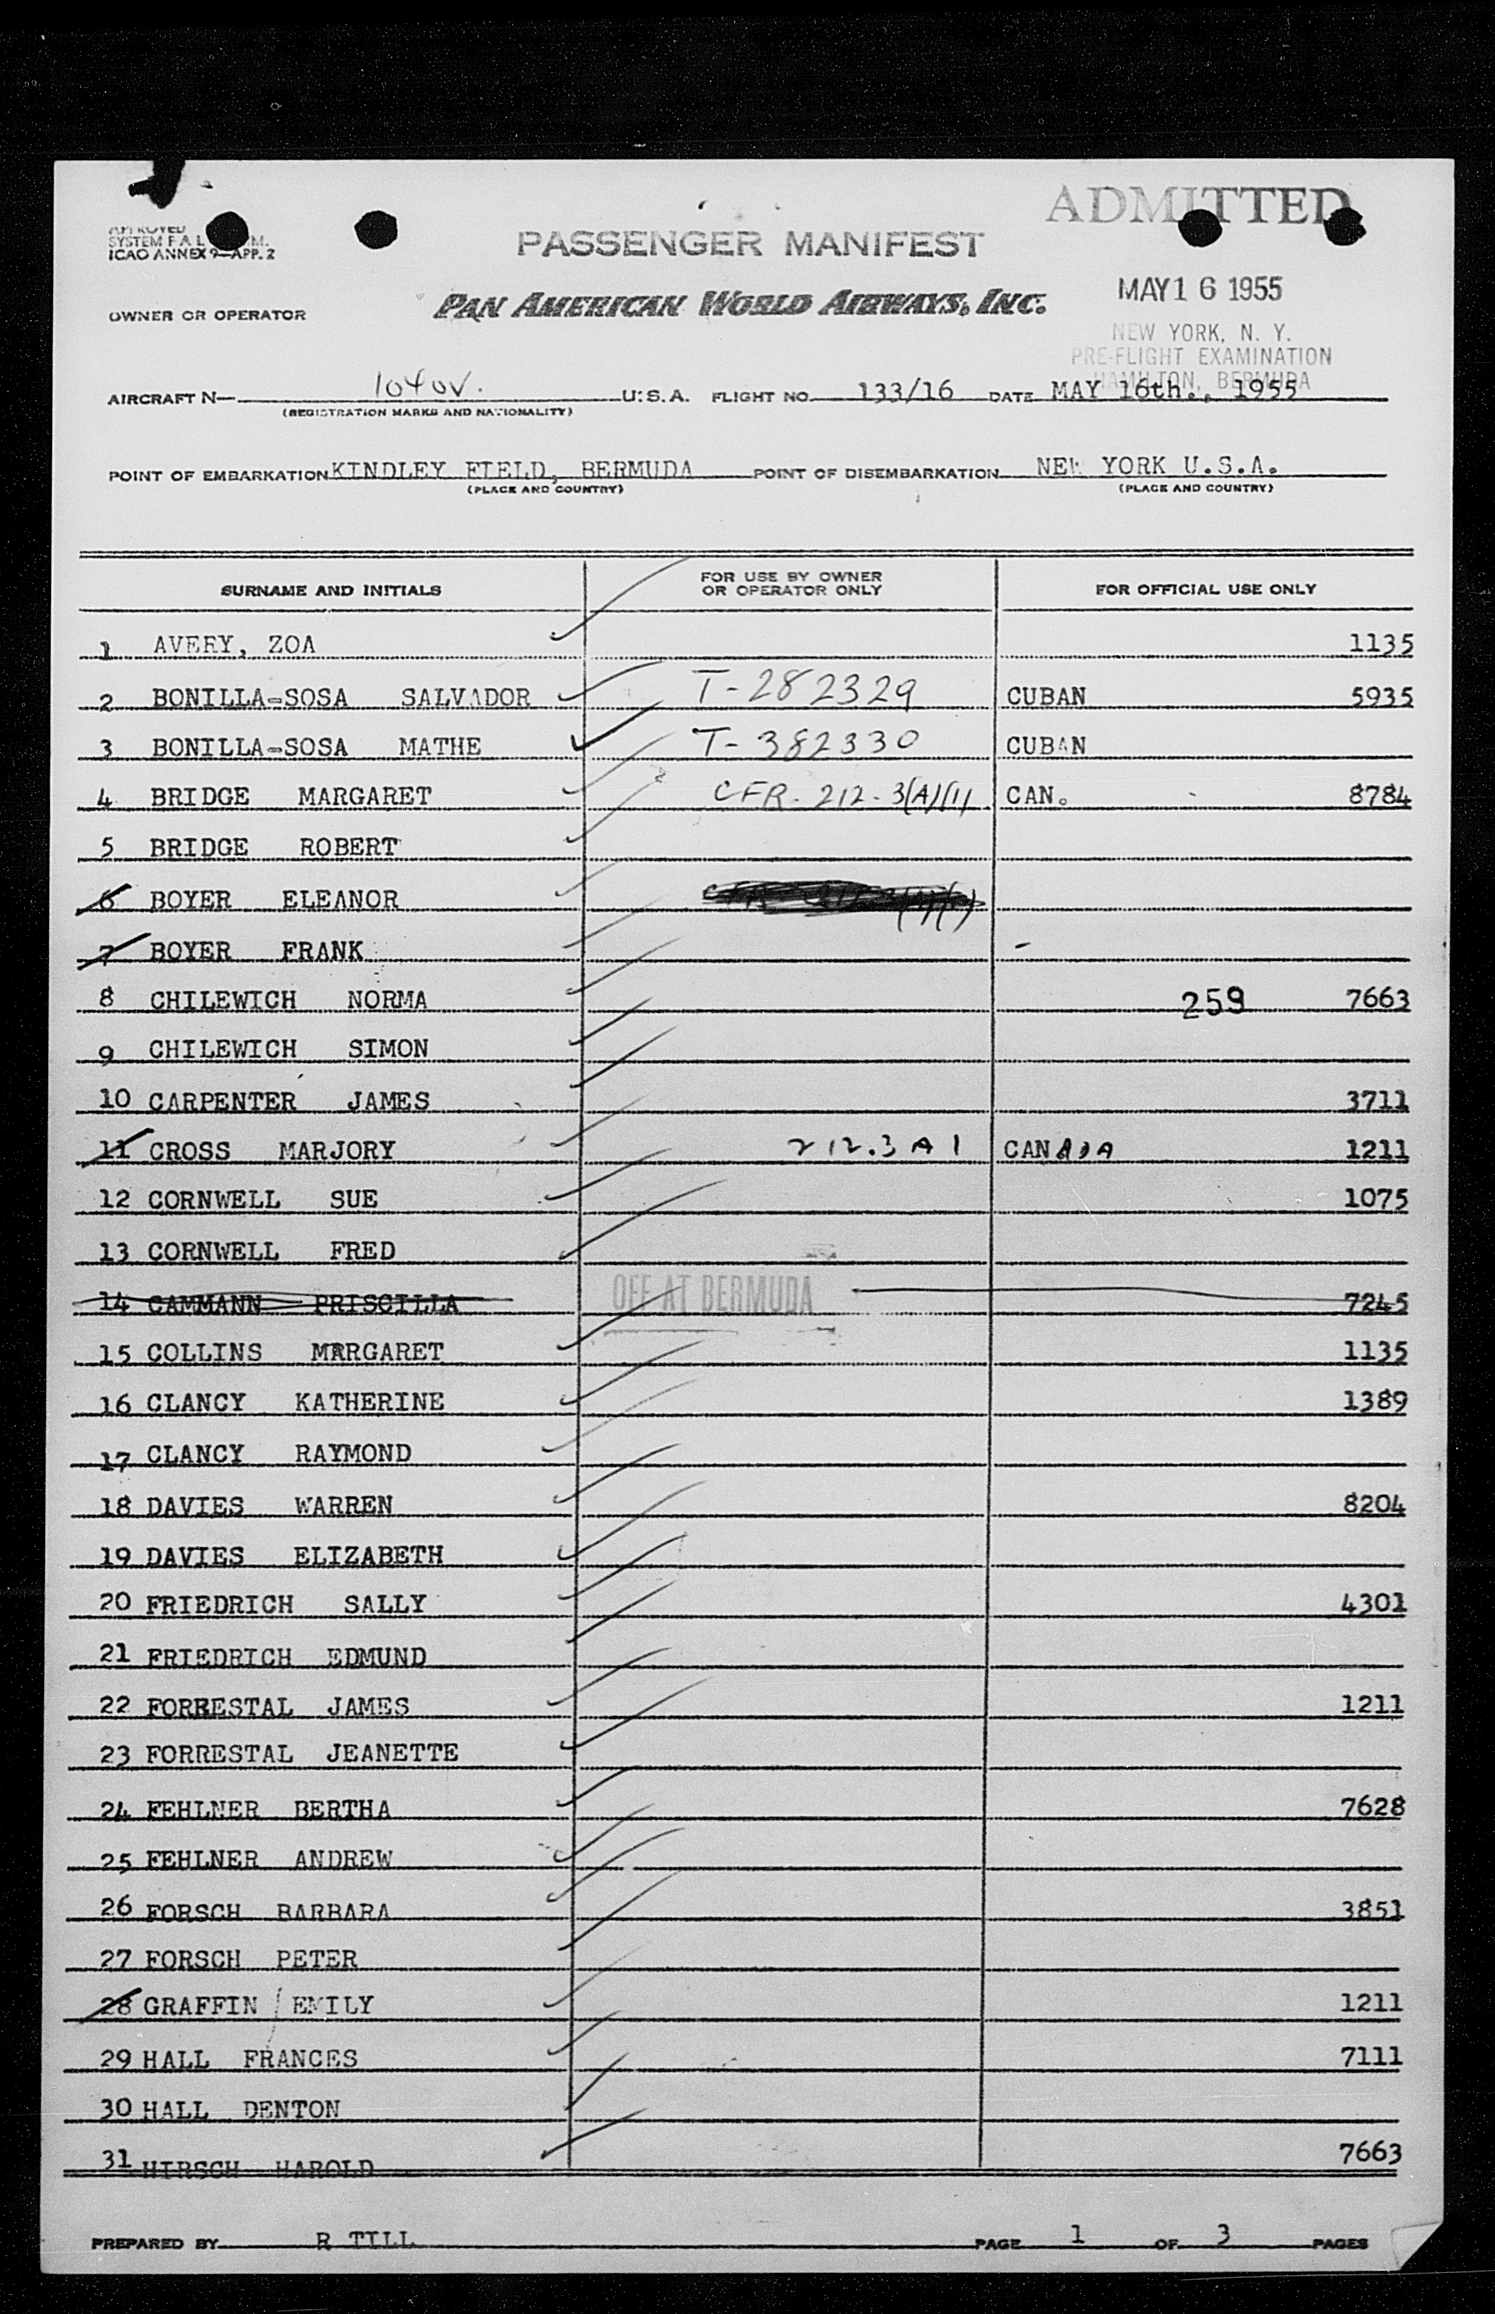 ADMITTED
APPROVED
SYSTEM F A L M.
ICAO ANNEX 9—APP. 2
PASSENGER MANIFEST
MAY 16 1955
OWNER OR OPERATOR PAN AMERICAN WORLD AIRWAYS, INC.
NEW YORK, N. Y.
PRE-FLIGHT EXAMINATION
HAMILTON, BERMUDA
AIRCRAFT N— 1040V. U.S.A. FLIGHT NO. 133/16 DATE MAY 16th., 1955
(REGISTRATION MARKS AND NATIONALITY)
POINT OF EMBARKATION KINDLEY FIELD, BERMUDA POINT OF DISEMBARKATION NEW YORK U.S.A.
(PLACE AND COUNTRY) (PLACE AND COUNTRY)
SURNAME AND INITIALS FOR USE BY OWNER OR OPERATOR ONLY FOR OFFICIAL USE ONLY
1 AVERY, ZOA 1135
2 BONILLA-SOSA SALVADOR T-282329 CUBAN 5935
3 BONILLA-SOSA MATHE T-382330 CUBAN
4 BRIDGE MARGARET CFR-212-3(A)(1) CAN. 8784
5 BRIDGE ROBERT
6 BOYER ELEANOR
7 BOYER FRANK -
8 CHILEWICH NORMA 259 7663
9 CHILEWICH SIMON
10 CARPENTER JAMES 3711
11 CROSS MARJORY 212.3 A 1 CANADA 1211
12 CORNWELL SUE 1075
13 CORNWELL FRED
14 CAMMANN PRISCILLA OFF AT BERMUDA 7245
15 COLLINS MARGARET 1135
16 CLANCY KATHERINE 1389
17 CLANCY RAYMOND
18 DAVIES WARREN 8204
19 DAVIES ELIZABETH
20 FRIEDRICH SALLY 4301
21 FRIEDRICH EDMUND
22 FORRESTAL JAMES 1211
23 FORRESTAL JEANETTE
24 FEHLNER BERTHA 7628
25 FEHLNER ANDREW
26 FORSCH BARBARA 3851
27 FORSCH PETER
28 GRAFFIN / EMILY 1211
29 HALL FRANCES 7111
30 HALL DENTON
31 HIRSCH HAROLD 7663
PREPARED BY R TILL PAGE 1 OF 3 PAGES